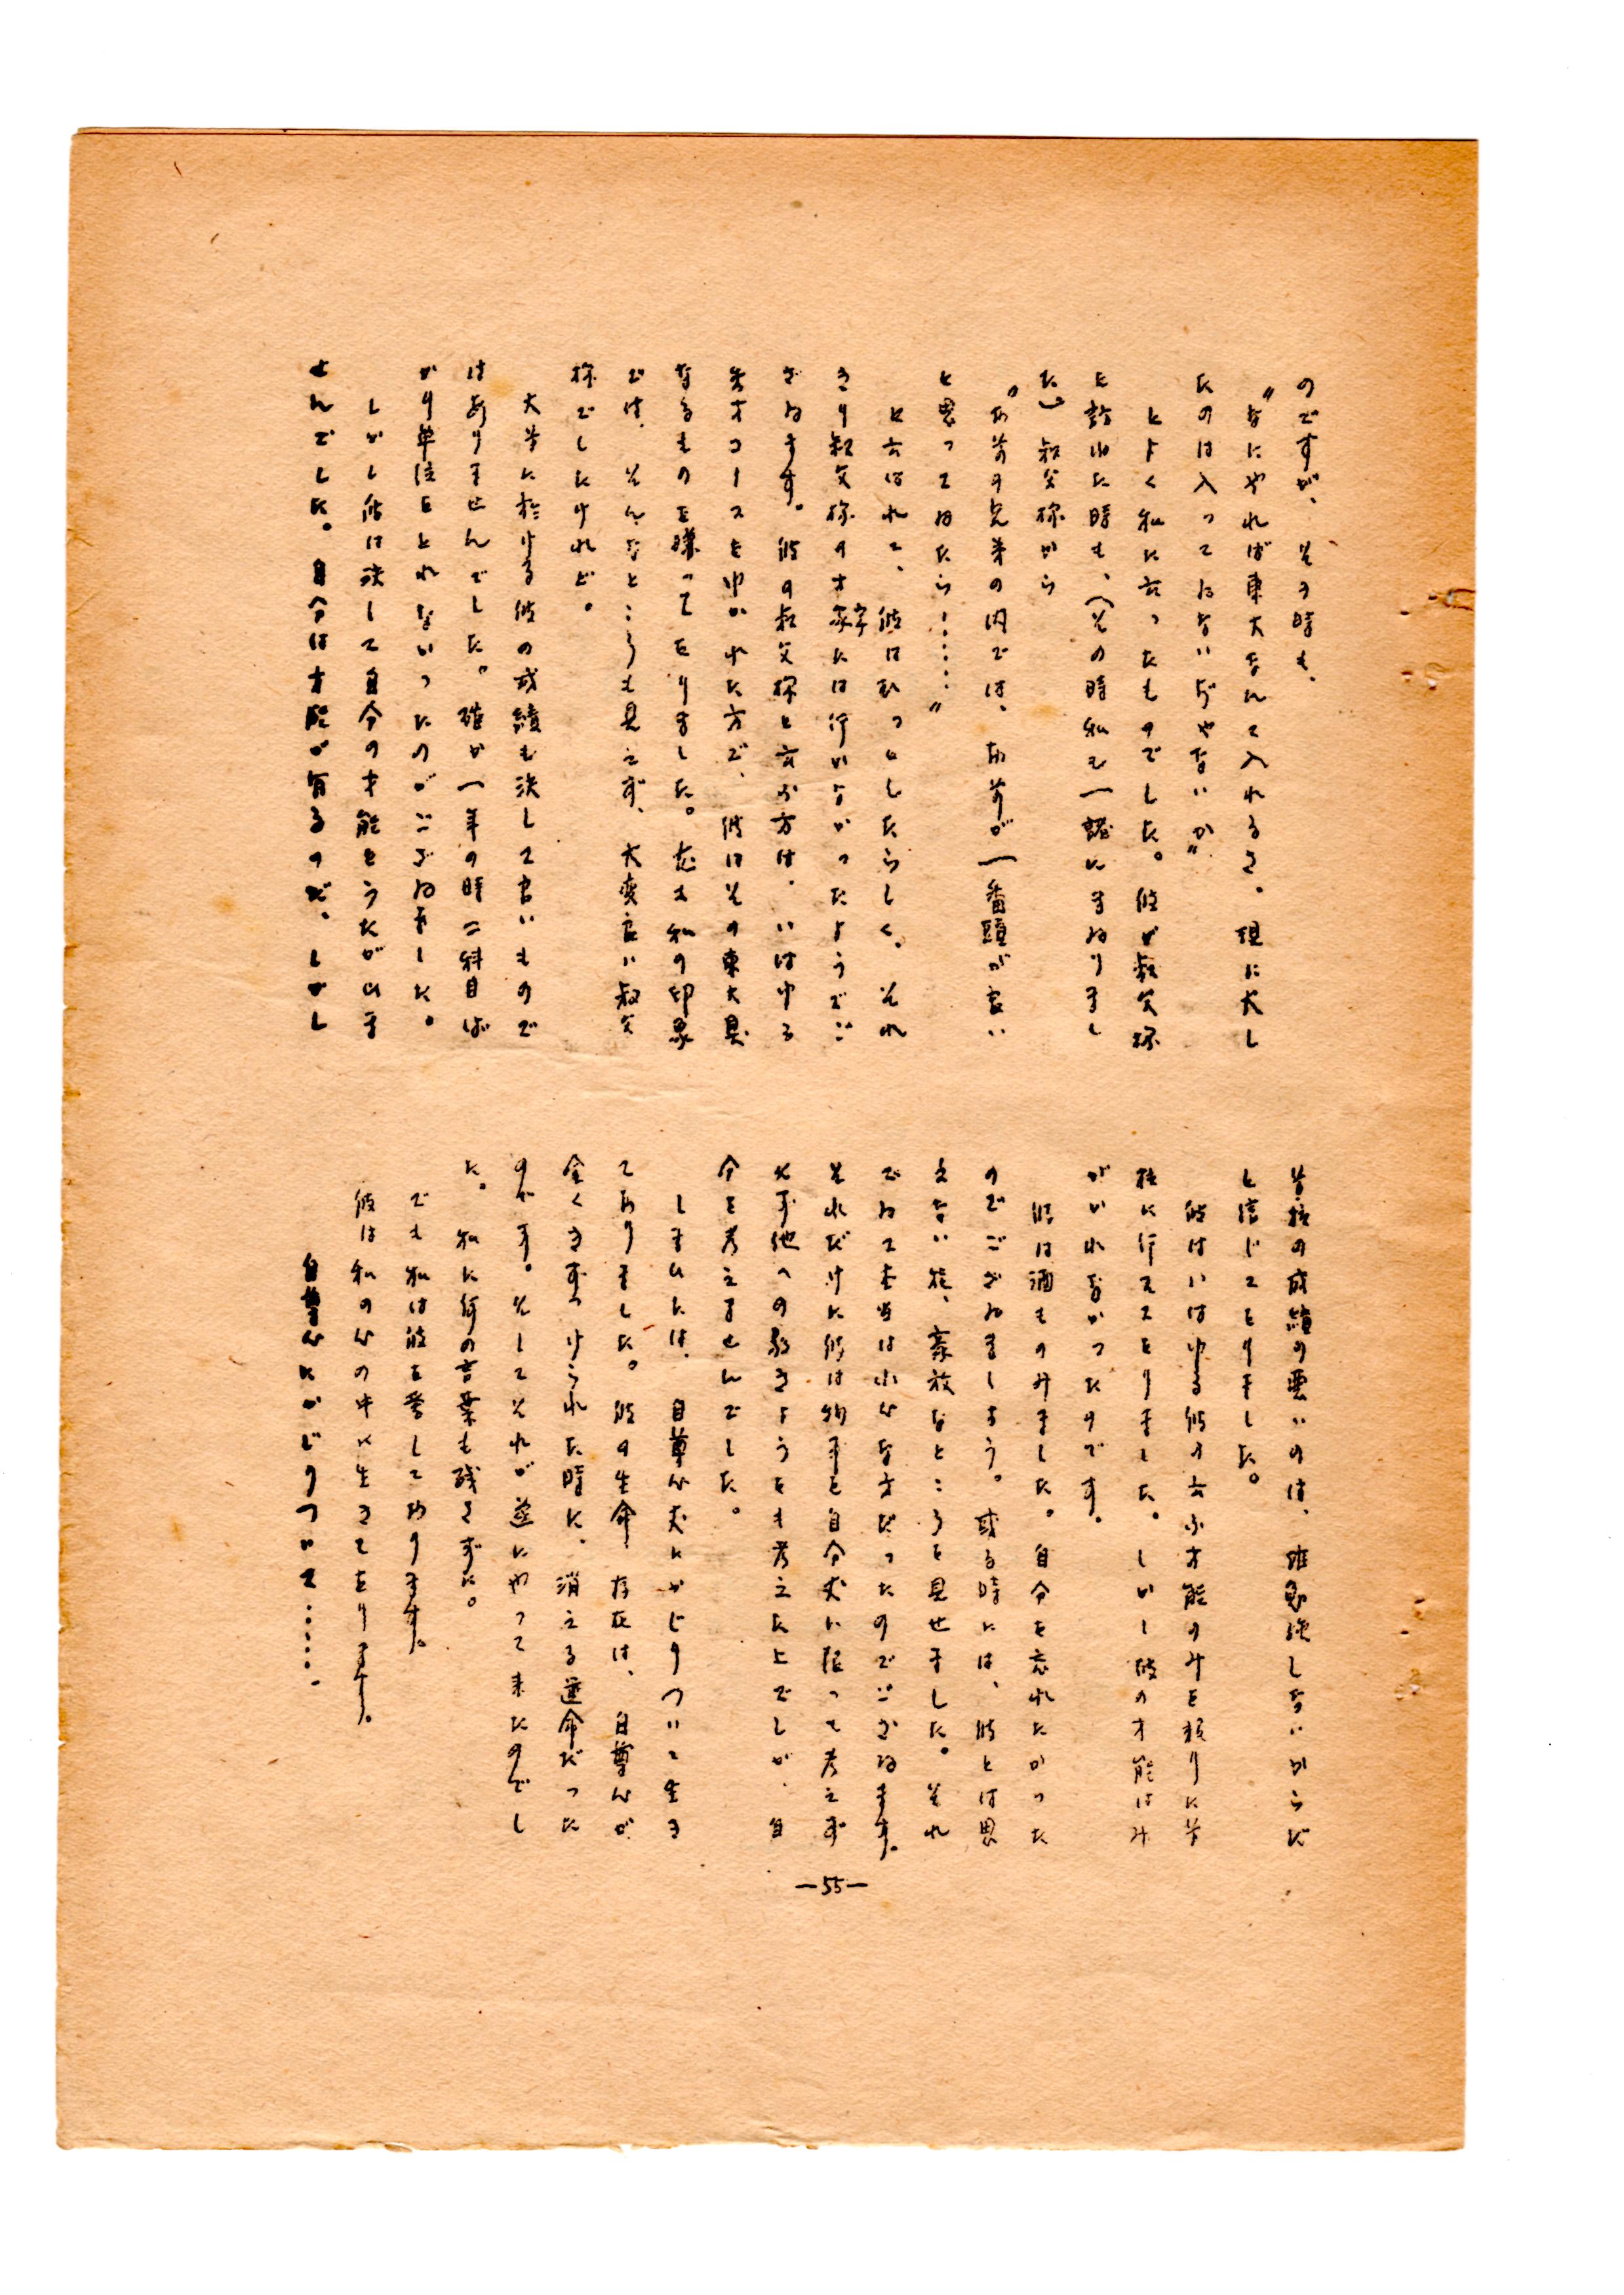 のですが、その時も、
〝なにやれば東大なんて入れるさ。現に大し
たのは入ってねないぢゃないか〟
とよく私に云ったものでした。彼が叔父様
を訪れた時も、（その時私も一諸にまゐりまし
た）叔父様から
〝お前の兄弟の内では、お前が一番頭が良い
と思ってゐたら！……〟
と云はれて、彼はむっとしたらしく、それ
きり叔父様のオ家には行かなかったようでご
ざゐます。彼の叔父様と云ふ方は、いはゆる
秀才コースをゆかれた方で、彼はその東大臭
なるものを嫌ってをりました。尤も私の印象
では、そんなところも見えず、大変良い叔父
様でしたけれど。
大学に於ける彼の成績も決して良いもので
はありませんでした。確か一年の時二科目ば
かり単位をとれないったのがござゐました。
しかし彼は決して自分の才能をうたがひま
せんでした。自分は才能が有るのだ。しかし
学校の成績の悪いのは、唯勉強しないからだ
と信じてをりました。
彼はいはゆる彼の云ふ才能のみを頼りに学
校に行ってをりました。しかし彼の才能はみ
がかれなかったのです。
彼は酒ものみました。自分を忘れたかった
のでござゐましょう。或る時には、彼とは思
えない程、豪放なところを見せました。それ
でゐて本当は小心な方だったのでござゐます。
それだけに彼は物事を自分丈に限って考えず
必ず他への影きようをも考えた上でしか、自
分を考えませんでした。
しまひには、自尊心丈にかじりついて生き
てありました。彼の生命　存在は、自尊心が
全くきずつけられた時に、消える運命だった
のです。そしてそれが遂にやって来たのでし
た。私に何の言葉も残さずに。
でも私は彼を愛してゐります。
彼は私の心の中に生きてをります。
自尊心にかじりついて……。
―55―